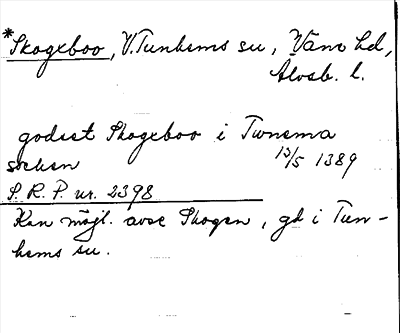 *Skogeboo, V. Tunhems sn, Väne hd,
Älvsb. l.
godset Skogeboo i Twnema
socken 13/5 1389
S. R. P. nr. 2398
Kan möjl. avse Skogen, gd i Tun-
hems sn.